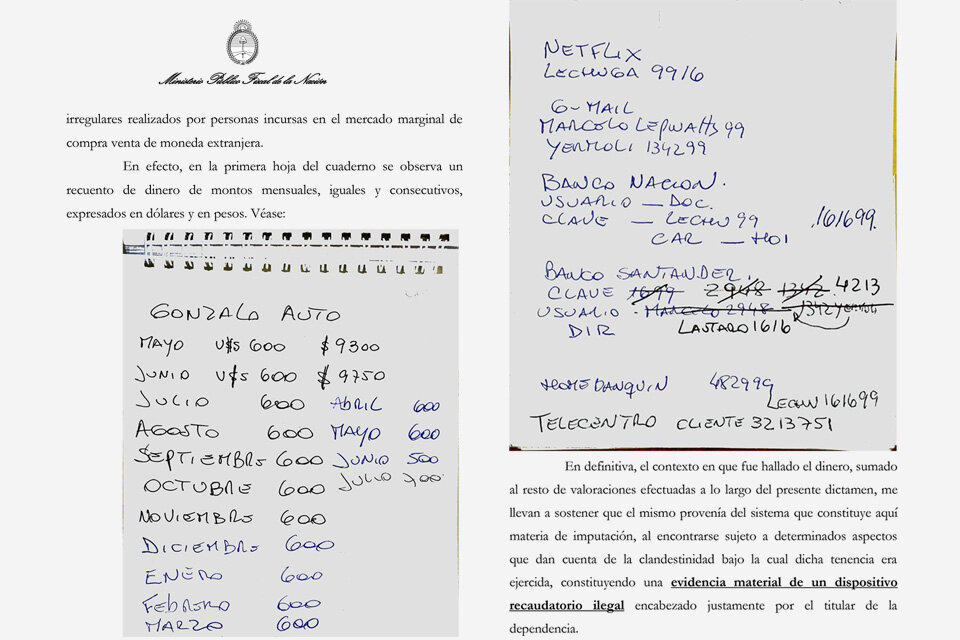 Ministerio Público Fiscal de la Nación
irregulares realizados por personas incursas en el mercado marginal de
compra venta de moneda extranjera.
En efecto, en la primera hoja del cuaderno se observa un
recuento de dinero de montos mensuales, iguales y consecutivos,
expresados en dólares y en pesos. Véase:
GONZALO AUTO
MAYO U$S 600 $ 9300
JUNIO U$S 600 $ 9750
JULIO 600 ABRIL 600
AGOSTO 600 MAYO 600
SEPTIEMBRE 600 JUNIO 500
OCTUBRE 600 JULIO 700
NOVIEMBRE 600
DICIEMBRE 600
ENERO 600
FEBRERO 600
MARZO 600
NETFLIX
LECHUGA 9916
G-MAIL
MARCELO LEPWATTS 99
YERMOLI 134299
BANCO NACION.
USUARIO — DOC.
CLAVE — LECHU 99 161699.
CAR — HOI
BANCO SANTANDER.
CLAVE 1699 2948 1342 4213
USUARIO - MARCELO 2948 1342
DIR LAUTARO 1616
HOMEBANQUIN 482999
LECHU 161699
TELECENTRO CLIENTE 3213751
En definitiva, el contexto en que fue hallado el dinero, sumado
al resto de valoraciones efectuadas a lo largo del presente dictamen, me
llevan a sostener que el mismo provenía del sistema que constituye aquí
materia de imputación, al encontrarse sujeto a determinados aspectos
que dan cuenta de la clandestinidad bajo la cual dicha tenencia era
ejercida, constituyendo una evidencia material de un dispositivo
recaudatorio ilegal encabezado justamente por el titular de la
dependencia.